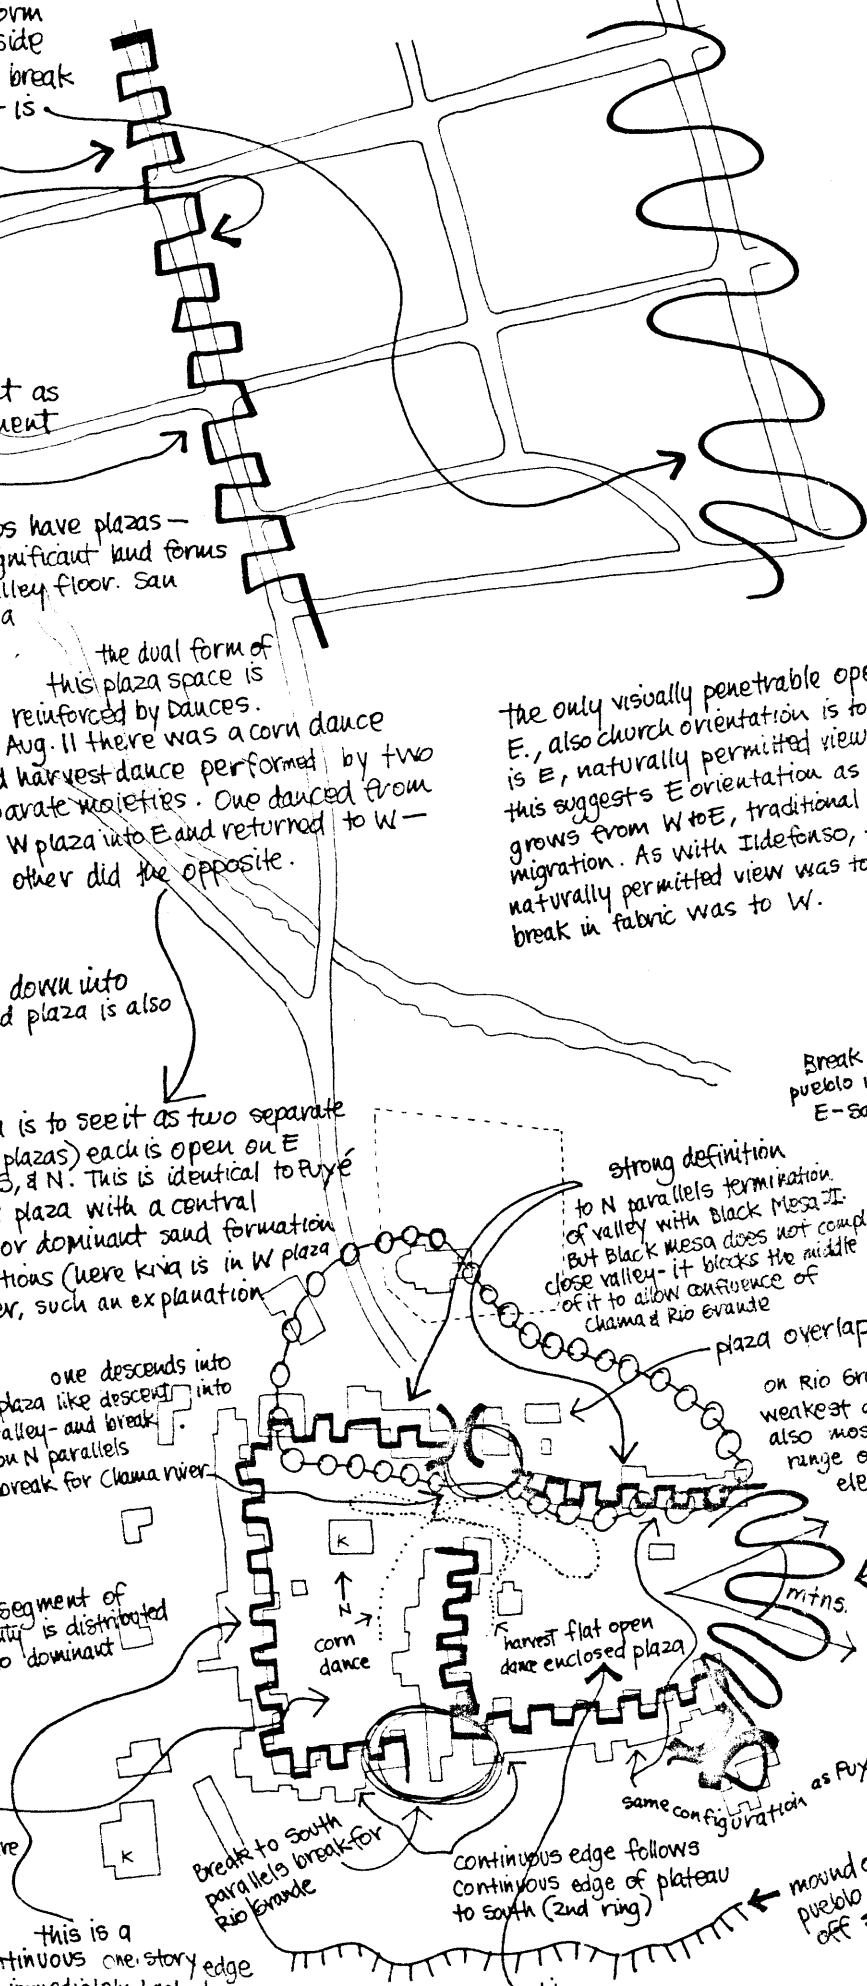 orm
side
break
is
t as
ment
os have plazas—
gnificant land forms
lley floor. San
a
the dual form of
this plaza space is
reinforced by Dances.
Aug. 11 there was a corn dance
d harvest dance performed by two
parate moieties. One danced from
W plaza into E and returned to W—
other did the opposite.
the only visually penetrable ope
E., also church orientation is to
is E, naturally permitted view
this suggests E orientation as
grows from W to E, traditional
migration. As with Ildefonso,
naturally permitted view was to
break in fabric was to W.
down into
d plaza is also
Break
pueblo
E-so
is to see it as two separate
plazas) each is open on E
S, & N. This is identical to Puyé
plaza with a central
or dominant sand formation
tions (here kiva is in W plaza
er, such an explanation
strong definition
to N parallels termination
of valley with Black Mesa II.
But Black mesa does not compl
close valley- it blocks the middle
of it to allow confluence of
Chama & Rio Grande
plaza overlap
one descends into
plaza like descent into
alley- and break
on N parallels
break for Chama river
on Rio Gr
weakest
also mos
range o
ele
K
N
corn
dance
harvest
dance
flat open
enclosed plaza
mtns.
segment of
ty is distributed
o dominant
same configuration as Puy
K
re
Break to South
parallels break for
Rio Grande
continuous edge follows
continuous edge of plateau
to south (2nd ring)
mound
pueblo
off
this is a
ntinuous one-story edge